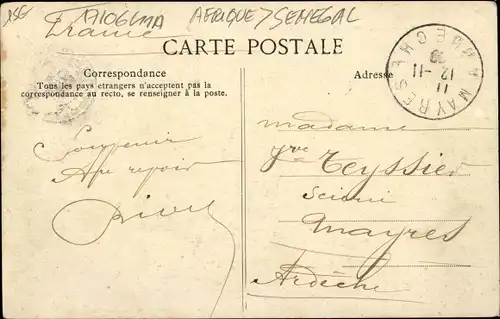 15€ A7106LMA AFRIQUE > SENEGAL
France
CARTE POSTALE
Correspondance
Tous les pays étrangers n'acceptent pas la
correspondance au recto, se renseigner à la poste.
Adresse
MAYRES
ARDECHE
11
12-11
09
Souvenir
Au revoir
Madame
Vve Teyssier
Mayres
Ardèche